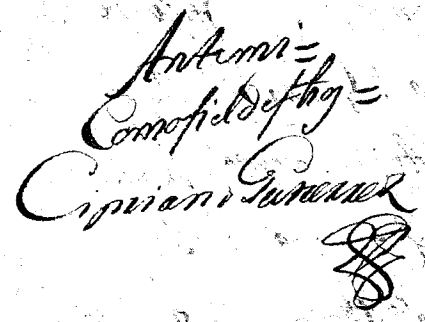 Antemi=
Comofieldefthg=
Cipriano Gutierrez